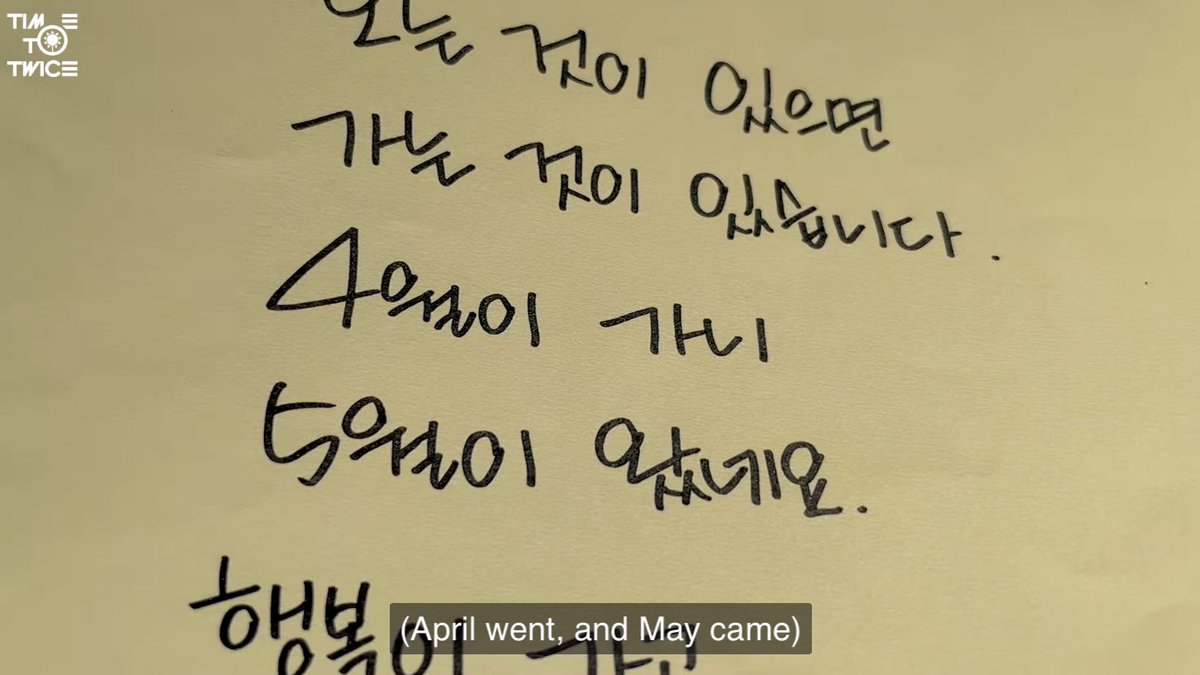 TIME
TO
TWICE
오는 것이 있으면
가는 것이 있습니다.
4월이 가니
5월이 왔네요.
행복이
(April went, and May came)